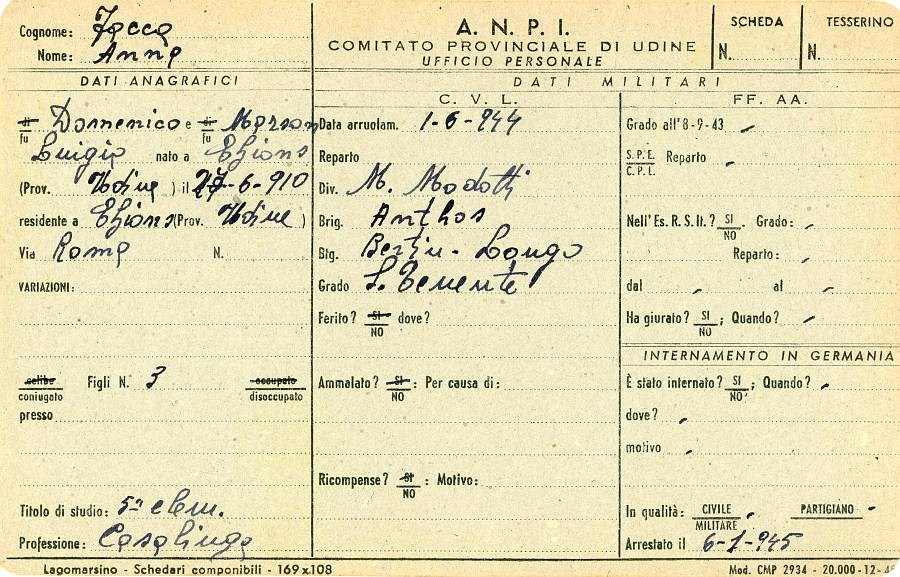 Cognome: Zocca
Nome: Anna
A. N. P. I.
COMITATO PROVINCIALE DI UDINE
UFFICIO PERSONALE
SCHEDA
N.
TESSERINO
N.
DATI ANAGRAFICI
di fu Domenico e di fu Morson
Luigia nato a Chions
(Prov. Udine) il 27-6-910
residente a Chions (Prov. Udine)
Via Roma N.
VARIAZIONI:
celibe coniugato Figli N. 3 occupato disoccupato
presso
Titolo di studio: 5ª elem.
Professione: Casalinga
DATI MILITARI
C. V. L.
Data arruolam. 1-6-944
Reparto
Div. M. Modotti
Brig. Anthos
Btg. Bertin - Longo
Grado S. Tenente
Ferito? SI NO dove?
Ammalato? SI NO : Per causa di:
Ricompense? SI NO : Motivo:
FF. AA.
Grado all'8-9-43
S.P.E. C.P.L. Reparto
Nell'Es. R. S. It.? SI NO. Grado:
Reparto:
dal al
Ha giurato? SI NO ; Quando?
INTERNAMENTO IN GERMANIA
È stato internato? SI NO ; Quando?
dove?
motivo
In qualità: CIVILE MILITARE PARTIGIANO
Arrestato il 6-1-945
Lagomarsino - Schedari componibili - 169x108
Mod. CMP 2934 - 20.000-12-45